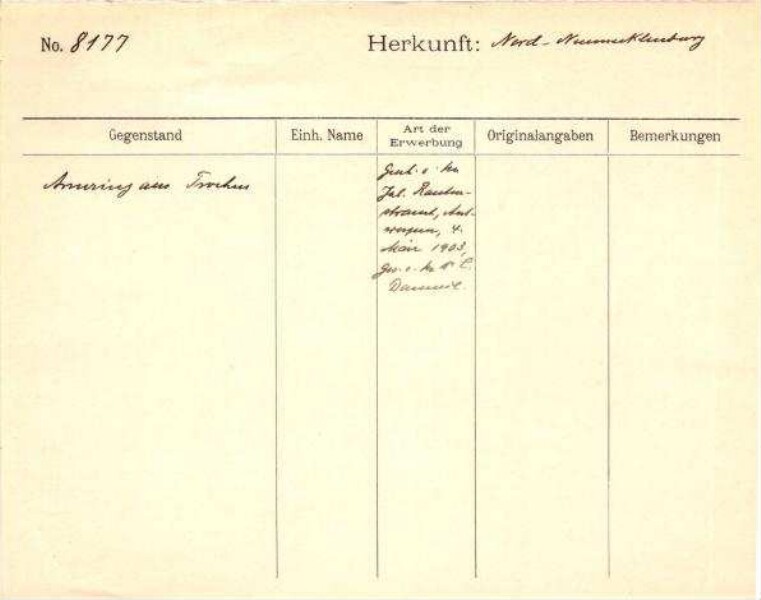 No. 8177
Herkunft: Nord-Neumecklenburg
Gegenstand
Einh. Name
Art der
Erwerbung
Originalangaben
Bemerkungen
Armring aus Trochus
Gesch. v. Hn
Jul. Rauten-
strauch, Ant-
werpen, 4.
März 1903,
Ges. v. Hn Dr C.
Damm